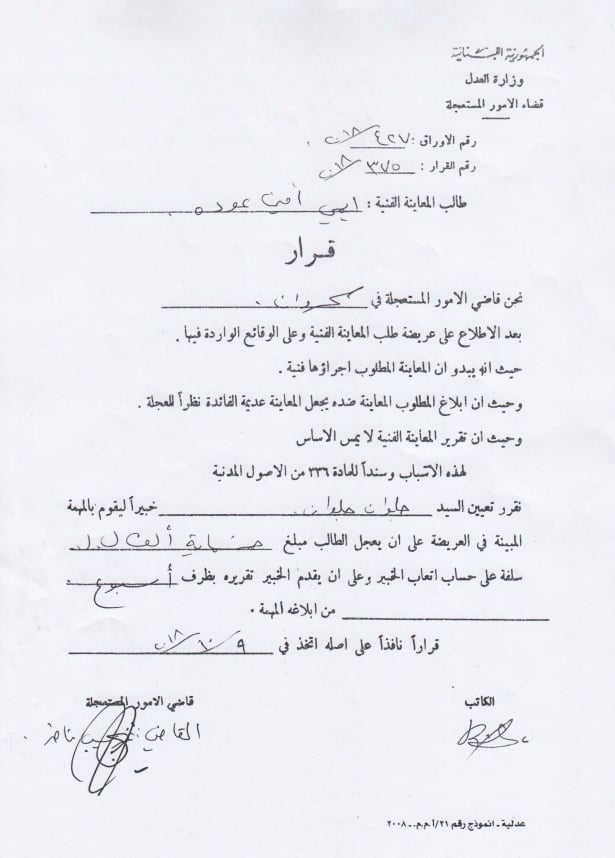 الجمهورية اللبنانية
وزارة العدل
قضاء الامور المستعجلة
رقم الاوراق : ٤٢٧/٢٠١٨
رقم القرار : ٣٧٥/٢٠١٨
طالب المعاينة الفنية : ايلي أمين عوده
قرار
نحن قاضي الامور المستعجلة في كسروان
بعد الاطلاع على عريضة طلب المعاينة الفنية وعلى الوقائع الواردة فيها .
حيث انه يبدو ان المعاينة المطلوب اجراؤها فنية .
وحيث ان ابلاغ المطلوب المعاينة ضده يجعل المعاينة عديمة الفائدة نظراً للعجلة .
وحيث ان تقرير المعاينة الفنية لا يمس الاساس
لهذه الاسباب وسنداً للمادة ٣٣٦ من الاصول المدنية
نقرر تعيين السيد حلوان حلوان خبيراً ليقوم بالمهمة
المبينة في العريضة على ان يعجل الطالب مبلغ خمسماية ألف ل.ل.
سلفة على حساب اتعاب الخبير وعلى ان يقدم الخبير تقريره بظرف أسبوع
من ابلاغه المهمة .
قراراً نافذاً على اصله اتخذ في ٩/١٠/٢٠١٨
الكاتب
قاضي الامور المستعجلة
القاضي
عدلية - انموذج رقم ٢١/أ.م.م. - ٢٠٠٨